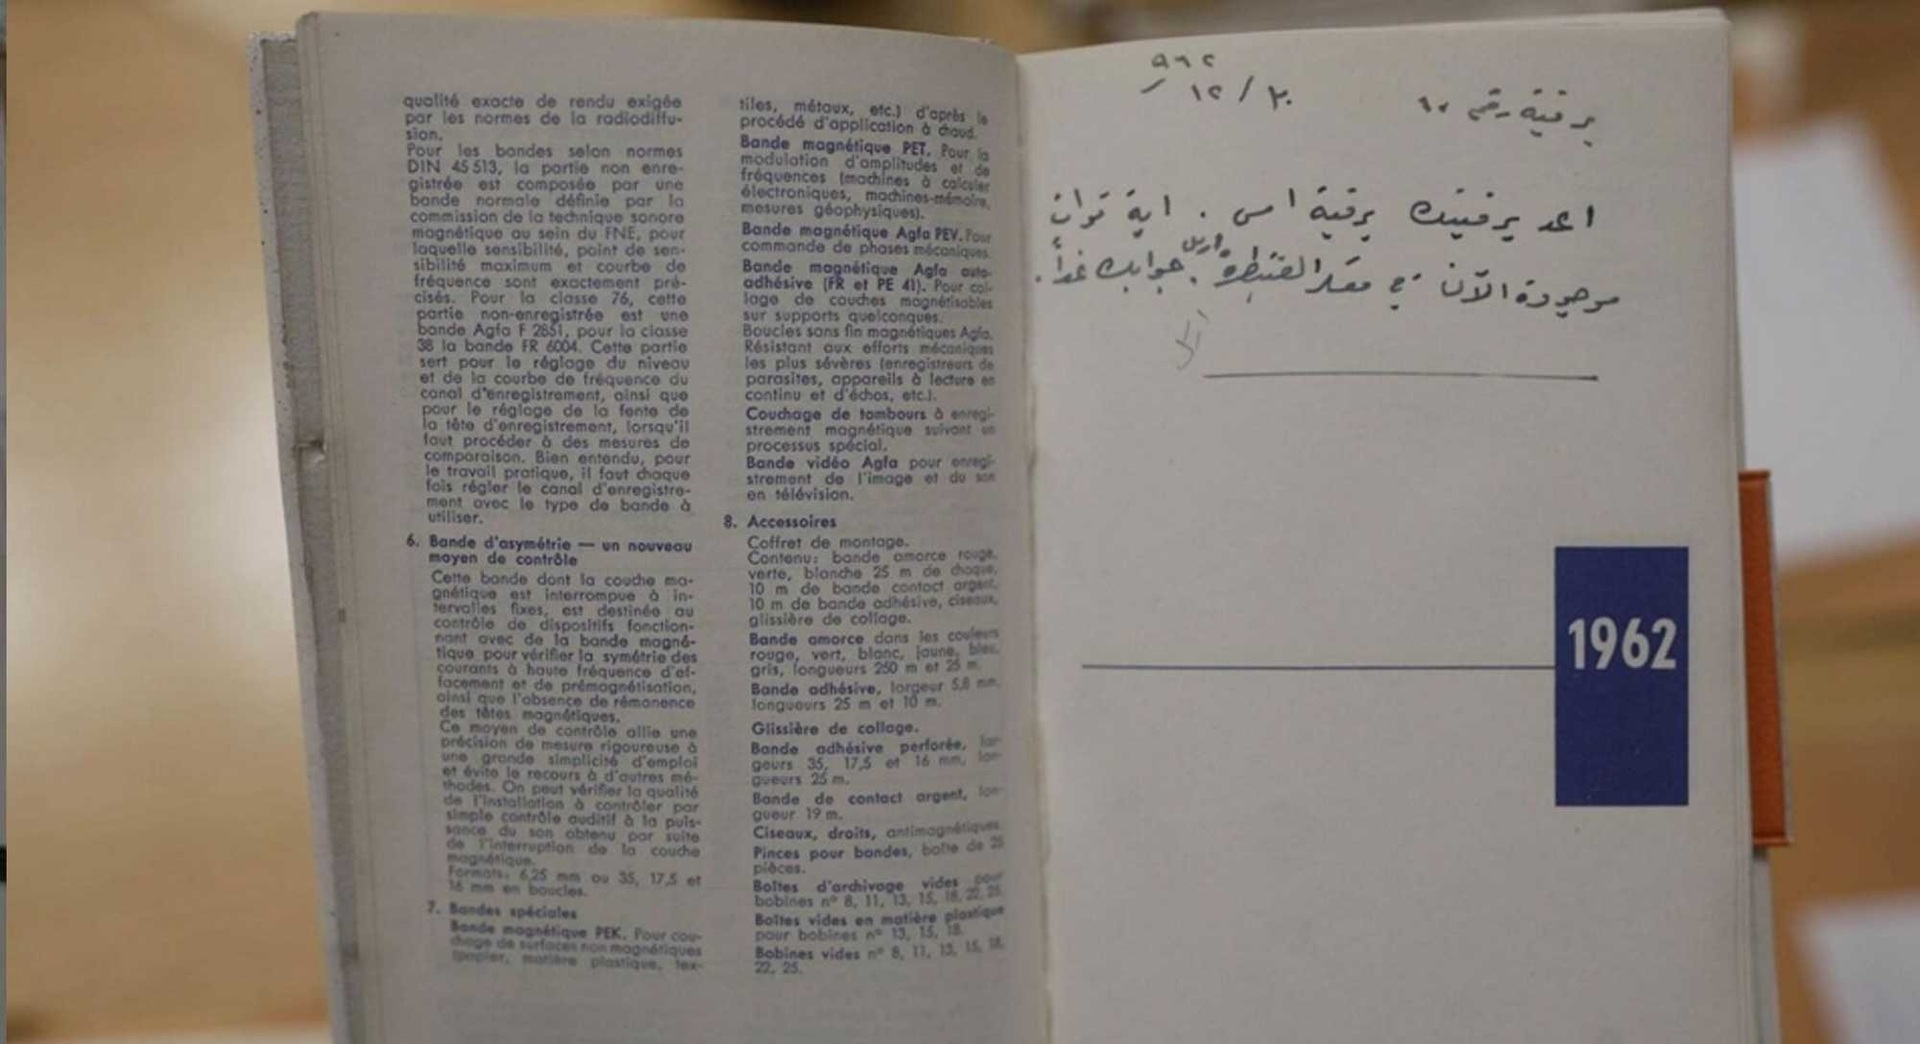 qualité exacte de rendu exigée
par les normes de la radiodiffu-
sion.
Pour les bandes selon normes
DIN 45 513, la partie non enre-
gistrée est composée par une
bande normale définie par la
commission de la technique sonore
magnétique au sein du FNE, pour
laquelle sensibilité, point de sen-
sibilité maximum et courbe de
fréquence sont exactement pré-
cisés. Pour la classe 76, cette
partie non-enregistrée est une
bande Agfa F 2851, pour la classe
38 la bande FR 6004. Cette partie
sert pour le réglage du niveau
et de la courbe de fréquence du
canal d'enregistrement, ainsi que
pour le réglage de la fente de
la tête d'enregistrement, lorsqu'il
faut procéder à des mesures de
comparaison. Bien entendu, pour
le travail pratique, il faut chaque
fois régler le canal d'enregistre-
ment avec le type de bande à
utiliser.
6. Bande d'asymétrie — un nouveau
moyen de contrôle
Cette bande dont la couche ma-
gnétique est interrompue à in-
tervalles fixes, est destinée au
contrôle de dispositifs fonction-
nant avec de la bande magné-
tique pour vérifier la symétrie des
courants à haute fréquence d'ef-
facement et de prémagnétisation,
ainsi que l'absence de rémanence
des têtes magnétiques.
Ce moyen de contrôle allie une
précision de mesure rigoureuse à
une grande simplicité d'emploi
et évite le recours à d'autres mé-
thodes. On peut vérifier la qualité
de l'installation à contrôler par
simple contrôle auditif à la puis-
sance du son obtenu par suite
de l'interruption de la couche
magnétique.
Formats: 6,25 mm ou 35, 17,5 et
16 mm en boucles.
7. Bandes spéciales
Bande magnétique PEK. Pour cou-
chage de surfaces non magnétiques
(papier, matière plastique, tex-
tiles, métaux, etc.) d'après le
procédé d'application à chaud.
Bande magnétique PET. Pour la
modulation d'amplitudes et de
fréquences (machines à calculer
électroniques, machines-mémoire,
mesures géophysiques).
Bande magnétique Agfa PEV. Pour
commande de phases mécaniques.
Bande magnétique Agfa auto-
adhésive (FR et PE 41). Pour col-
lage de couches magnétisables
sur supports quelconques.
Boucles sans fin magnétiques Agfa.
Résistant aux efforts mécaniques
les plus sévères (enregistreurs de
parasites, appareils à lecture en
continu et d'échos, etc.).
Couchage de tambours à enregi-
strement magnétique suivant un
processus spécial.
Bande vidéo Agfa pour enregi-
strement de l'image et du son
en télévision.
8. Accessoires
Coffret de montage.
Contenu: bande amorce rouge,
verte, blanche 25 m de chaque,
10 m de bande contact argent,
10 m de bande adhésive, ciseaux,
glissière de collage.
Bande amorce dans les couleurs
rouge, vert, blanc, jaune, bleu,
gris, longueurs 250 m et 25 m.
Bande adhésive, largeur 5,8 mm,
longueurs 25 m et 10 m.
Glissière de collage.
Bande adhésive perforée, lar-
geurs 35, 17,5 et 16 mm, lon-
gueurs 25 m.
Bande de contact argent, lon-
gueur 19 m.
Ciseaux, droits, antimagnétiques.
Pinces pour bandes, boîte de 25
pièces.
Boîtes d'archivage vides pour
bobines n° 8, 11, 13, 15, 18, 22, 25.
Boîtes vides en matière plastique
pour bobines n° 13, 15, 18.
Bobines vides n° 8, 11, 13, 15, 18,
22, 25.
٩٦٢
١٢/٢٠
برقية رقم
اعد برقيتك برقية امس . اية قوات
موجودة الآن في معسكر القنيطرة . ارسل جوابك غداً .
1962